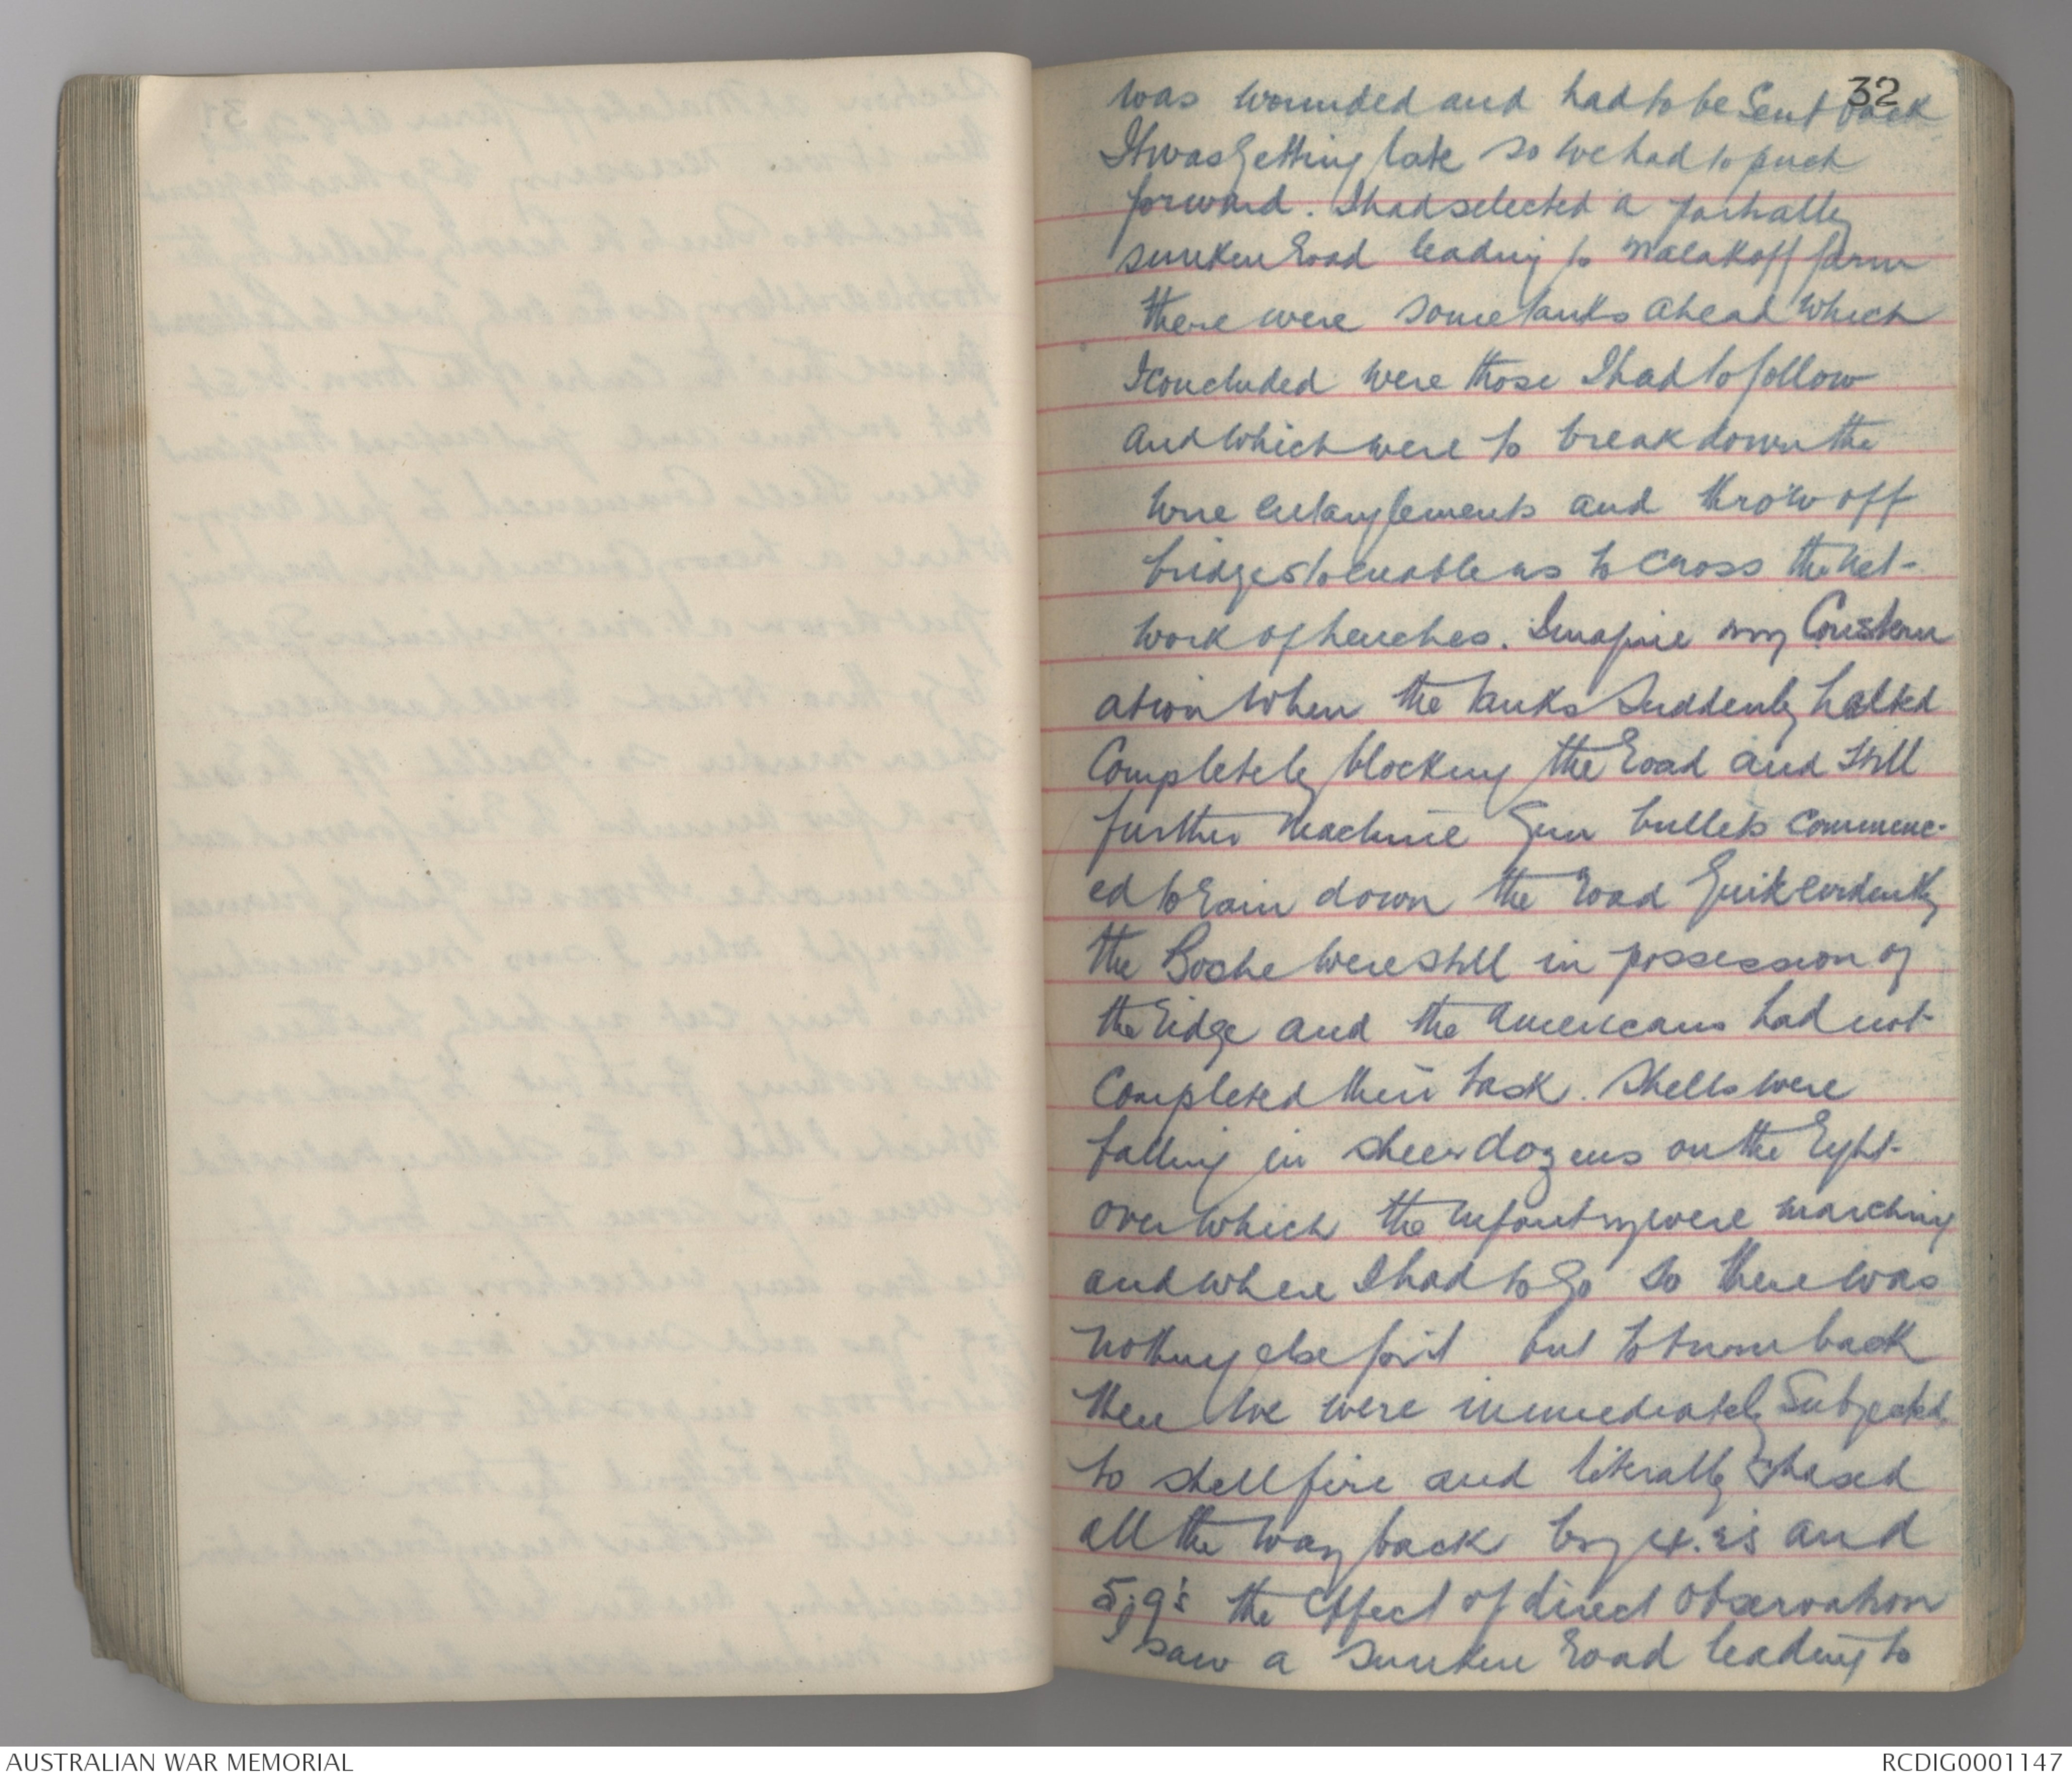 32
was wounded and had to be sent back
It was getting late so we had to push
forward. I had selected a partially
sunken road leading to Malakoff farm
there were some tanks ahead which
I concluded were those I had to follow
and which were to break down the
wire entanglements and throw off
bridges to enable us to cross the net-
work of trenches. Imagine my Constern
ation when the tanks suddenly halted
Completely blocking the road and still
further machine gun bullets commenc-
ed to rain down the road quite evidently
the Boche were still in possession of
the ridge and the Americans had not
Completed their task. Shells were
falling in sheer dozens on the right
over which the infantry were marching
and where I had to go so there was
nothing else for it but to turn back
then we were immediately subjected
to shell fire and literally chased
all the way back by 4.2s and
5.9's the effect of direct observation
I saw a sunken road leading to
AUSTRALIAN WAR MEMORIAL
RCDIG0001147